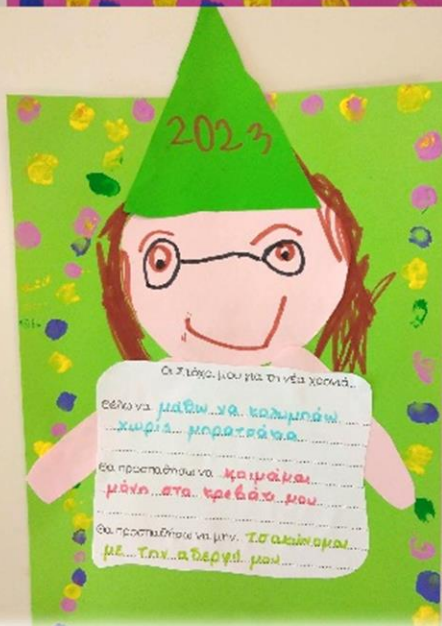 2023
Οι στόχοι μου για τη νέα χρονιά...
Θέλω να μάθω να κολυμπάω
χωρίς μπρατσάκια
Θα προσπαθήσω να κοιμάμαι
μόνη στο κρεβάτι μου
Θα προσπαθήσω να μην τσακώνομαι
με την αδερφή μου